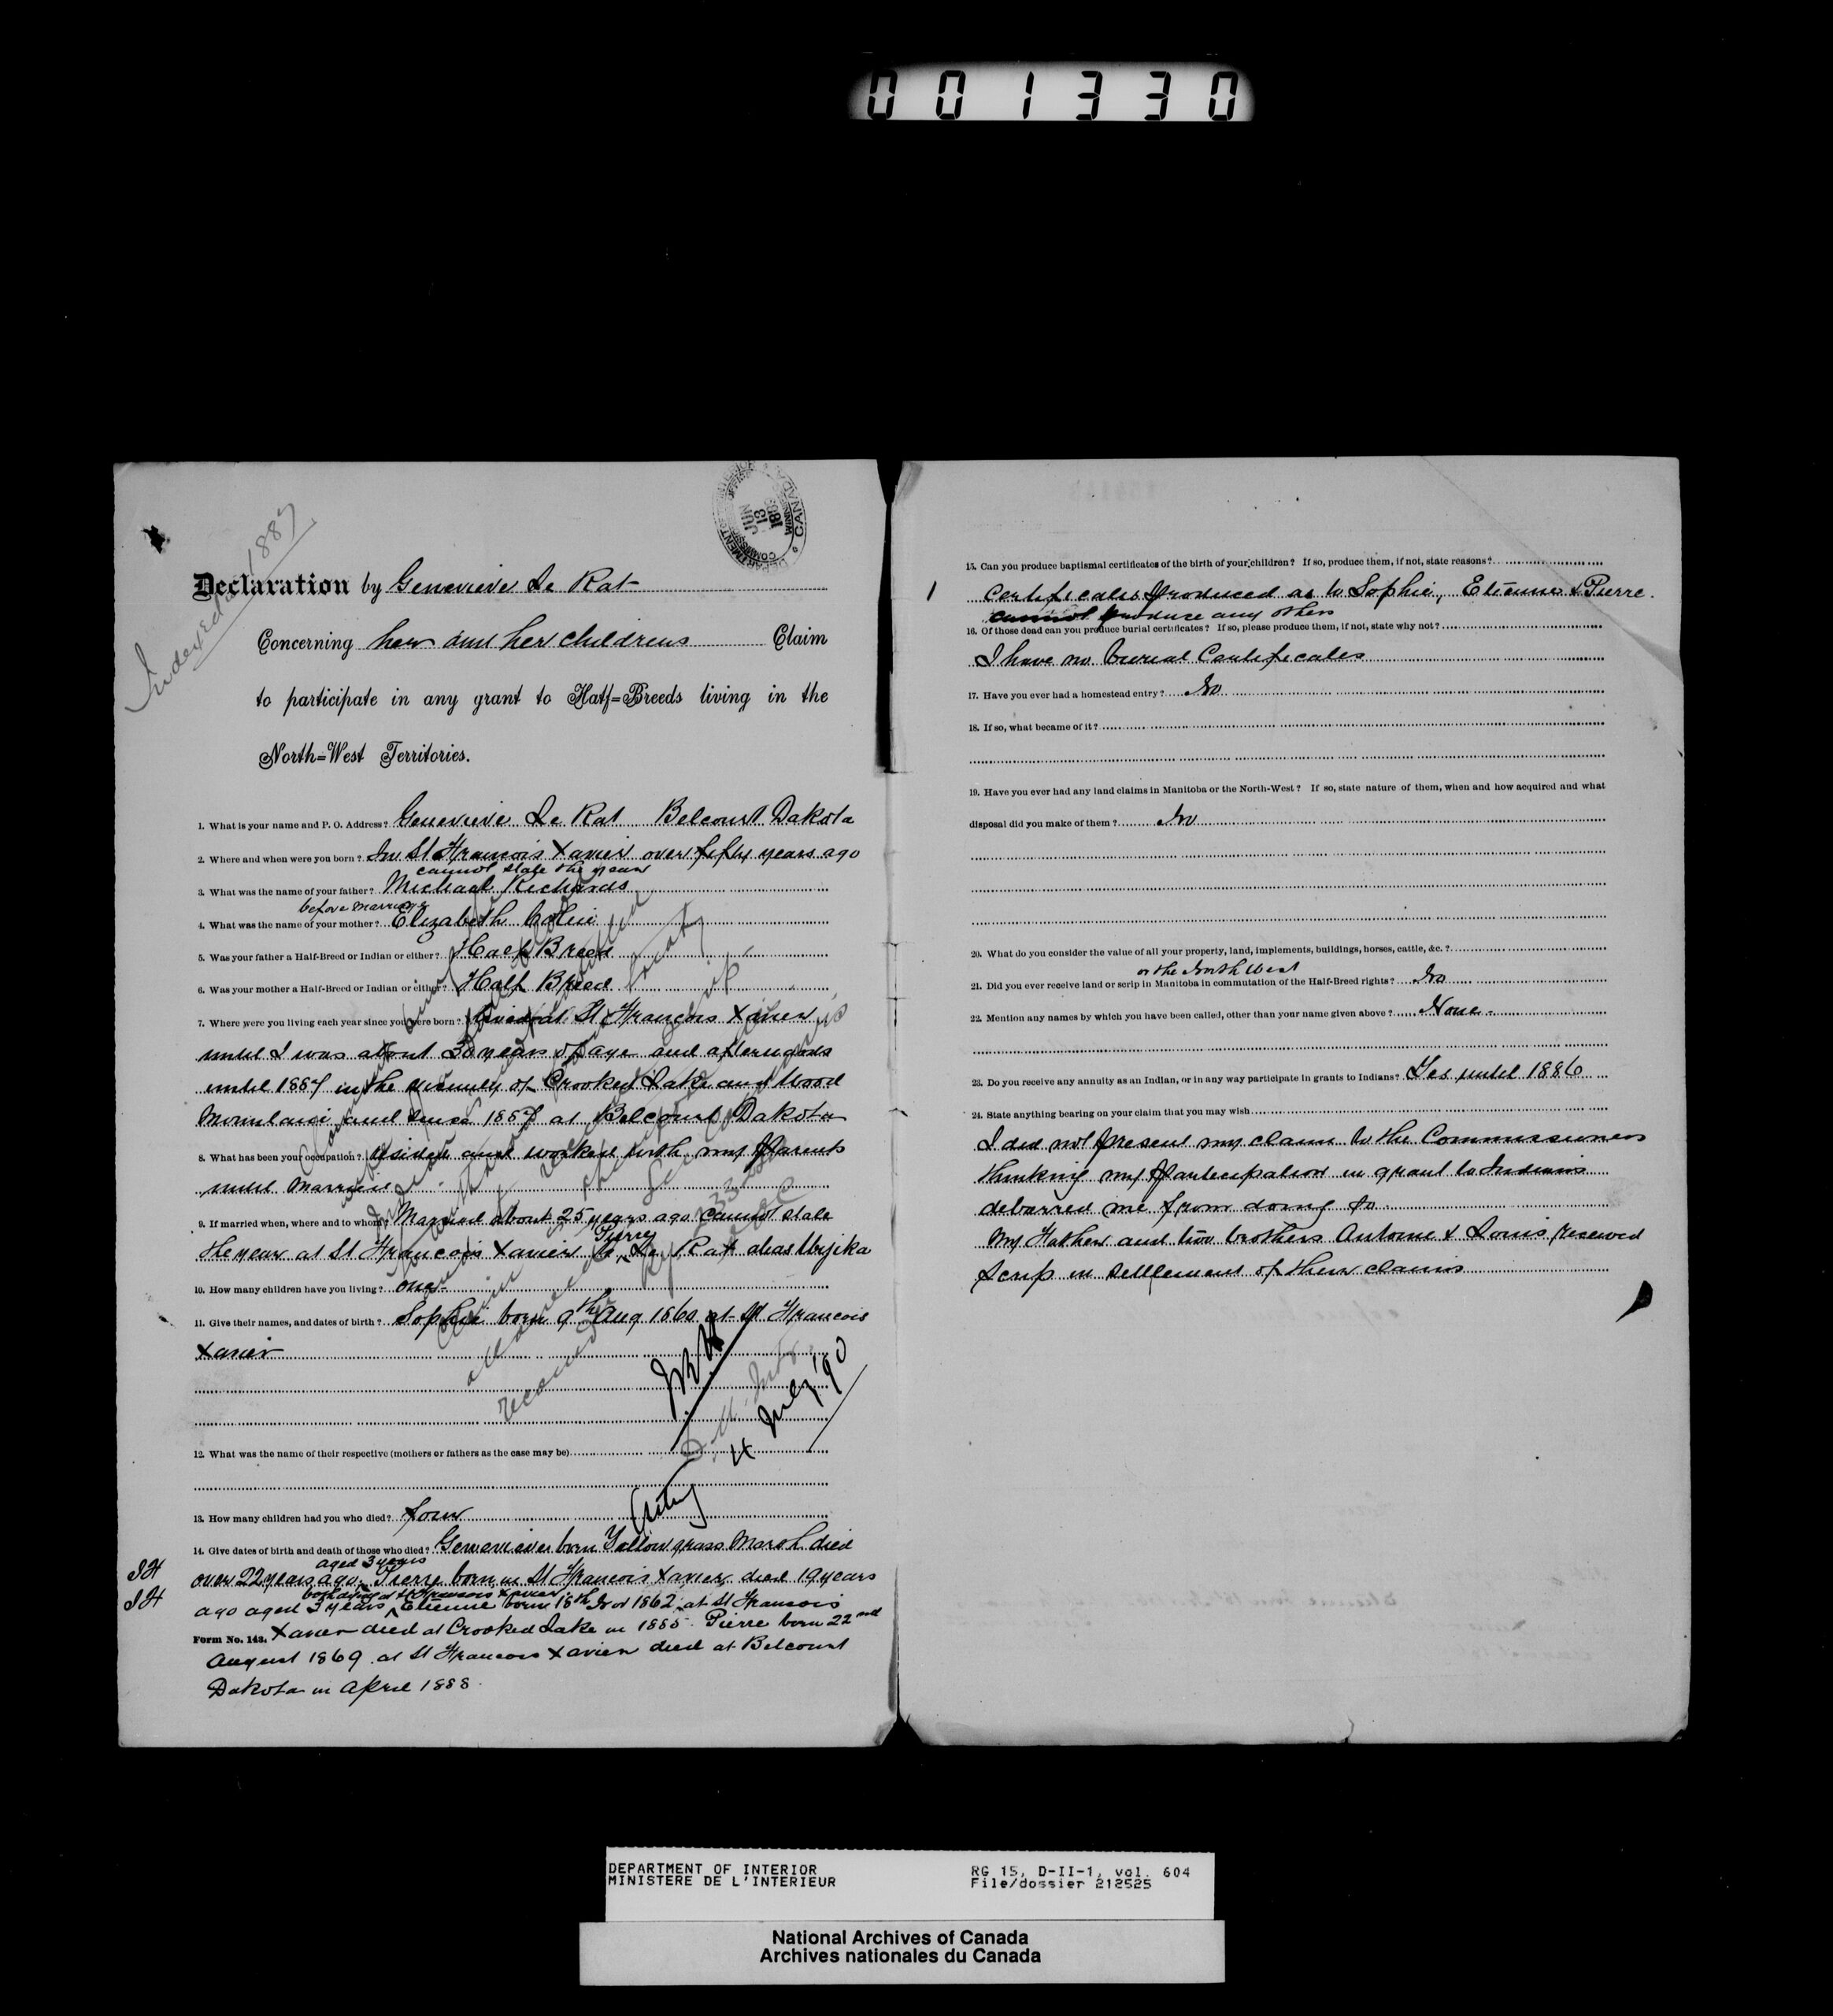 001330
Indexed 1887
DEPARTMENT
COMMISSIONER
JUN
13
CANADA
Declaration by Genevieve Le Rat
Concerning her and her childrens Claim
to participate in any grant to Half=Breeds living in the
North=West Territories.
1. What is your name and P. O. Address? Genevieve Le Rat Belcourt Dakota
2. Where and when were you born? In St Francois Xavier over fifty years ago
cannot state the year
3. What was the name of your father? Michael Richards
before marriage
4. What was the name of your mother? Elizabeth
5. Was your father a Half-Breed or Indian or either? Half Breed
6. Was your mother a Half-Breed or Indian or either? Half Breed
7. Where were you living each year since you were born? Lived at St Francois Xavier
until I was about 30 years of age and afterwards
until 1887 in the vicinity of Crooked Lake and Wood
Mountain and since 1887 at Belcourt Dakota
8. What has been your occupation? resided and worked with my parents
until married
9. If married when, where and to whom? Married about 25 years ago cannot state
the year at St Francois Xavier to Pierre Le Rat alias Wyjika
10. How many children have you living? one
11. Give their names, and dates of birth? Sophie born 9th Aug 1860 at St Francois
Xavier
12. What was the name of their respective (mothers or fathers as the case may be)
4 July '90
13. How many children had you who died? four
14. Give dates of birth and death of those who died? Genevieve born Yellow grass Marsh died
aged 3 years
over 22 years ago. Pierre born in St Francois Xavier died 19 years
both died at St Francois Xavier
ago aged 3 years Etienne born 18th Nov 1862 at St Francois
Form No. 143. Xavier died at Crooked Lake in 1885. Pierre born 22nd
August 1869 at St Francois Xavier died at Belcourt
Dakota in April 1888.
15. Can you produce baptismal certificates of the birth of your children? If so, produce them, if not, state reasons?
1 Certificates produced as to Sophie, Etienne & Pierre.
cannot produce any others
16. Of those dead can you produce burial certificates? If so, please produce them, if not, state why not?
I have no burial Certificates
17. Have you ever had a homestead entry? No
18. If so, what became of it?
19. Have you ever had any land claims in Manitoba or the North-West? If so, state nature of them, when and how acquired and what
disposal did you make of them? No
20. What do you consider the value of all your property, land, implements, buildings, horses, cattle, &c.?
or the North West
21. Did you ever receive land or scrip in Manitoba in commutation of the Half-Breed rights? No
22. Mention any names by which you have been called, other than your name given above? None.
23. Do you receive any annuity as an Indian, or in any way participate in grants to Indians? Yes until 1886
24. State anything bearing on your claim that you may wish
I did not present my claim to the Commissioners
thinking my participation in grant to Indians
debarred me from doing so
My Father and two brothers Antoine & Louis received
scrip in settlement of their claims
DEPARTMENT OF INTERIOR
MINISTERE DE L'INTERIEUR
RG 15, D-II-1, vol. 604
File/dossier 212525
National Archives of Canada
Archives nationales du Canada